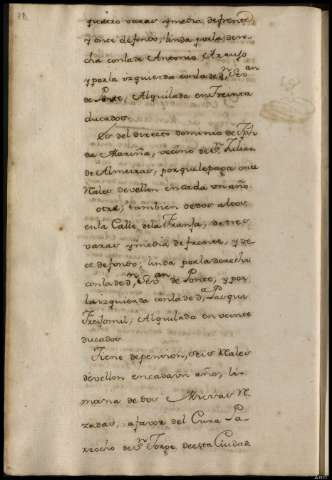 quatro varas y media de frente
y once de fondo, linda por la dere-
cha con la de Antonio Araujo
y por la izquierda con la de Dn
de Ponte, Alquilada en Treinta
ducados.
Es del directo dominio de
de Mariña, vecino de Sn Julian
de Almeiras, por que le paga once
Rales de vellon en cada un año.
otra, tambien de dos altos
en la Calle de la Franja, de tres
varas y media de frente, y
ce de fondo, linda por la derecha
con la de dn de Ponte, y por
la izquierda con la de da
Freijomil, Alquilada en veinte
ducados
Tiene de pension, seis Rales
de vellon en cada un año, li-
mosna de dos Missas R
zadas, a favor del Cura Pa-
rrocho de Sn Jorge de esta Ciudad